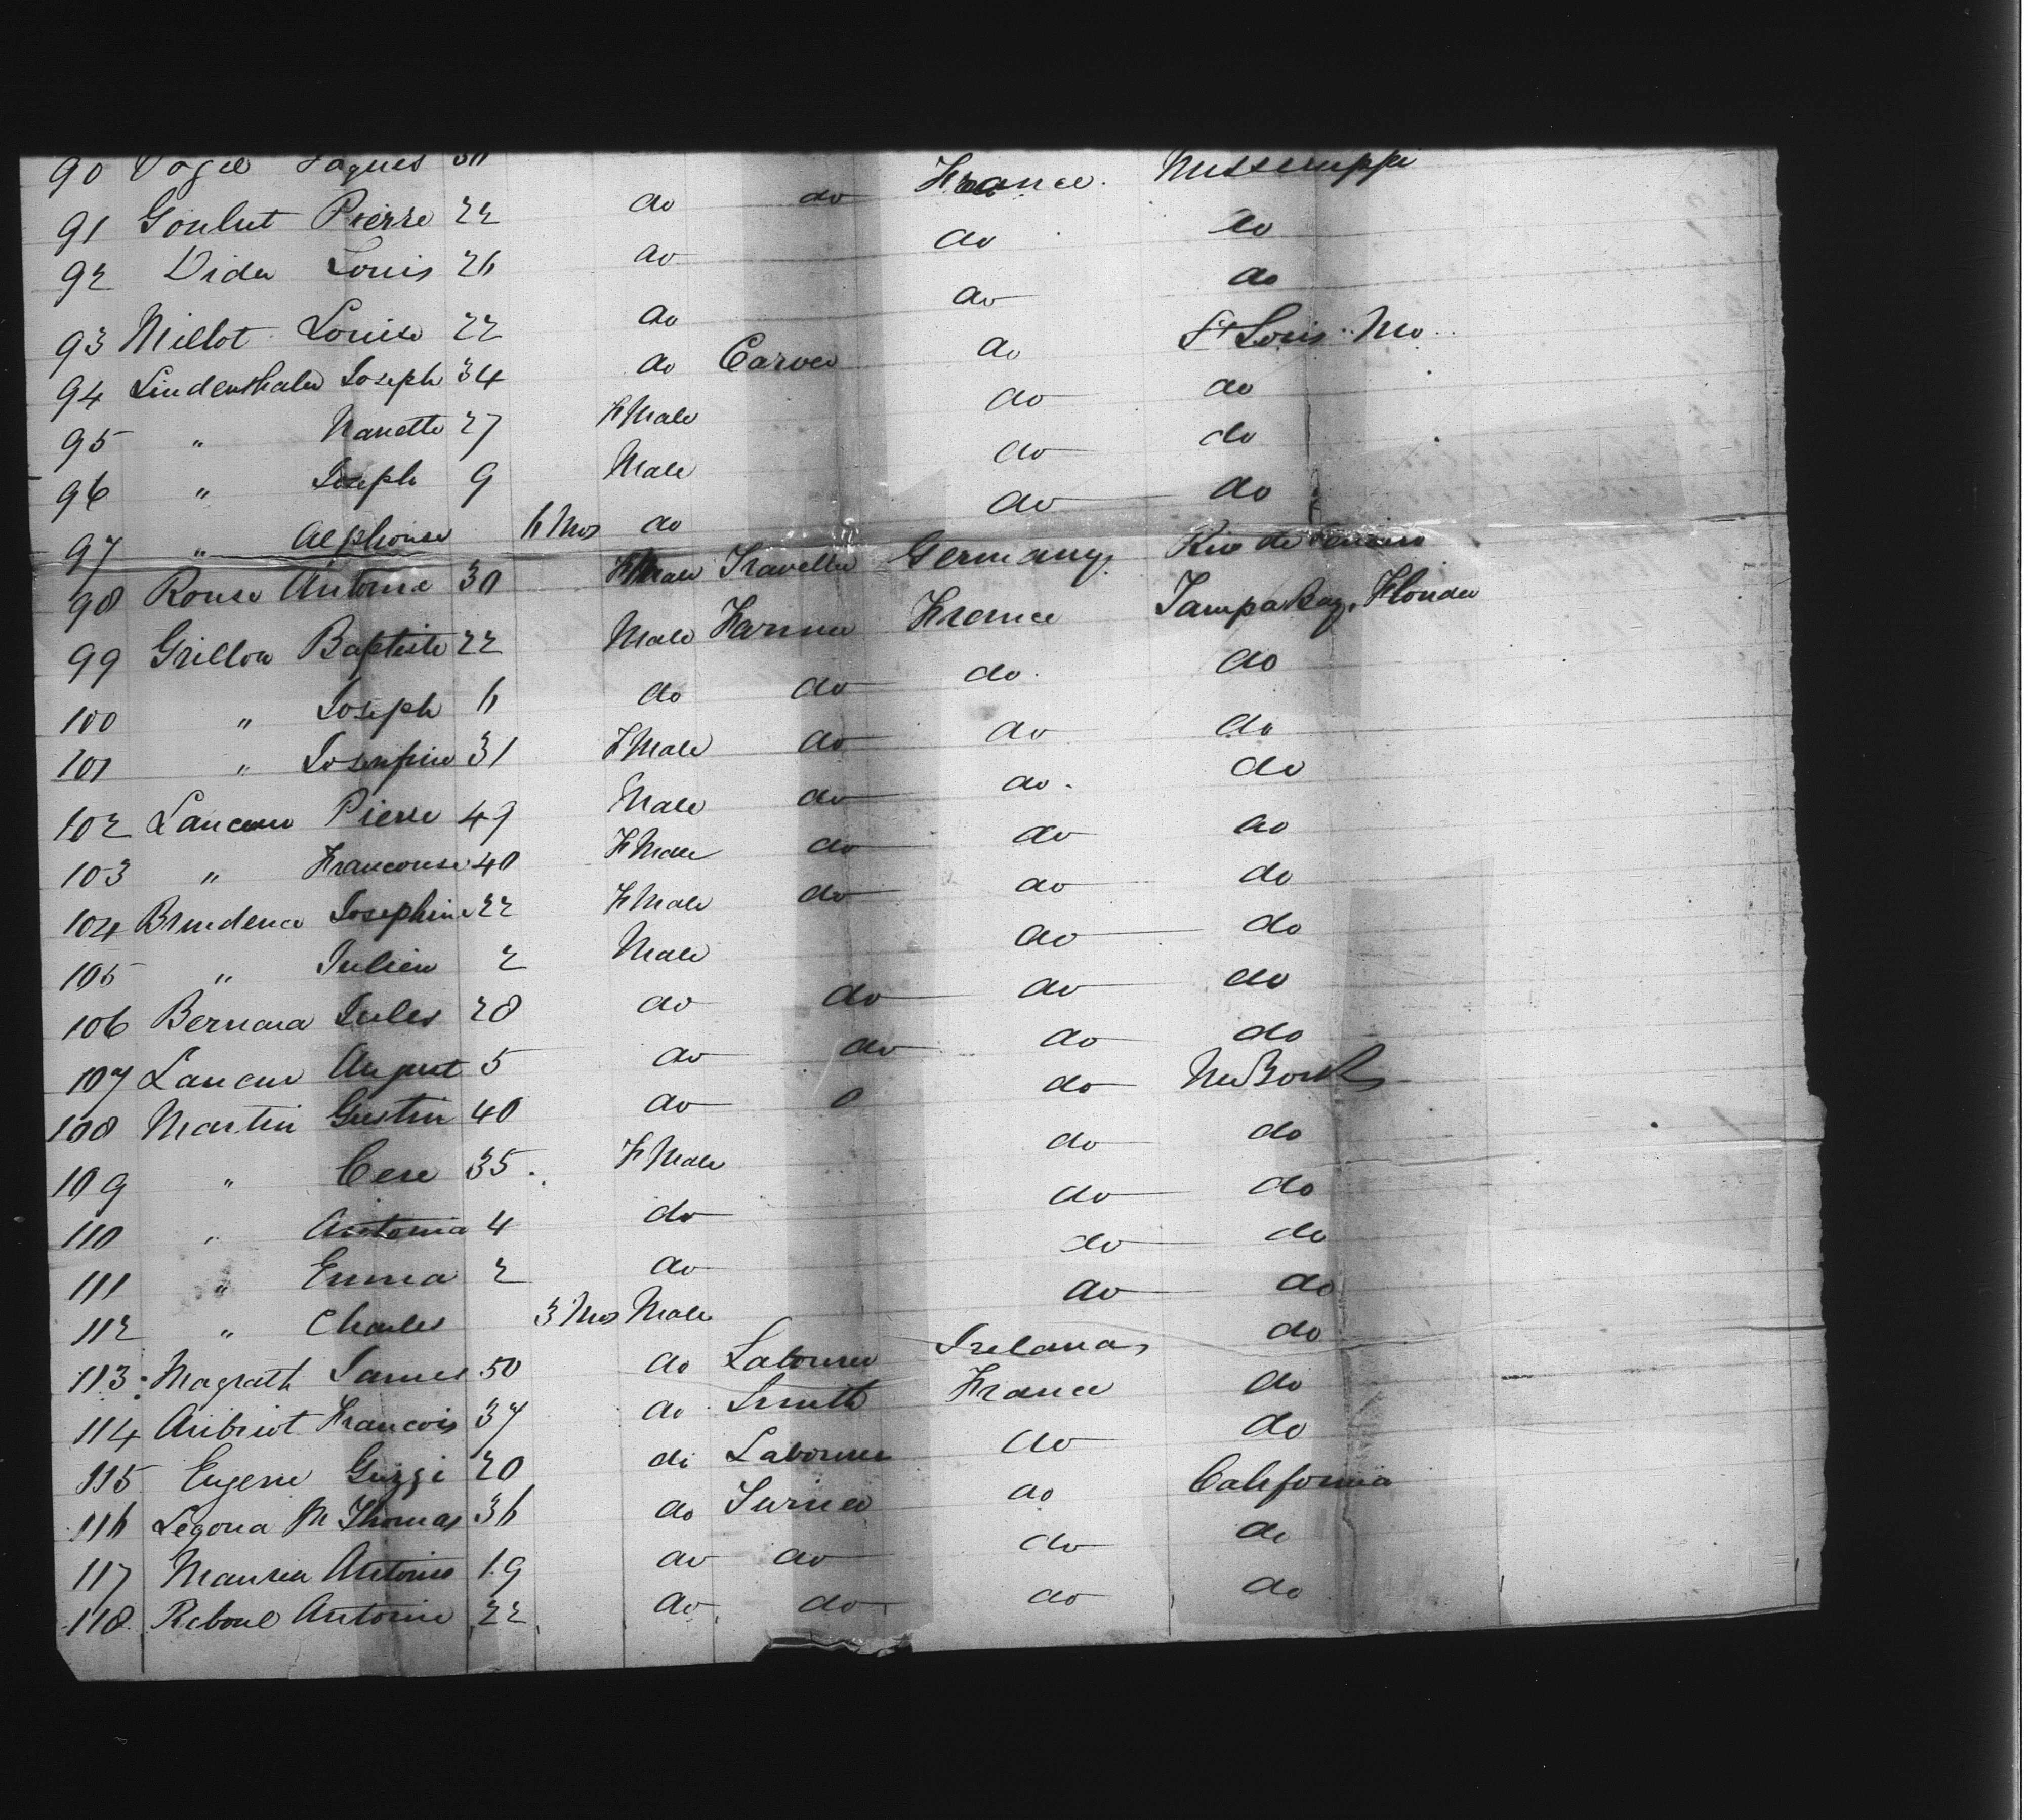 90 Vogel Jaques 30
91 Goulut Pierre 22 do do France. Mississippi
92 Dida Louis 26 do do do
93 Millot Louise 22 do do do
94 Lindenthaler Joseph 34 do Carver do St Louis Mo
95 " Nanette 27 FMale do do
96 " Joseph 9 Male do do
97 " Alphonse 6 Mos do do do
98 Rouse Antoine 30 FMale Traveller Germany Rio de Janeiro
99 Grillon Baptiste 22 Male Farmer France Tampa Bay, Florida
100 " Joseph 6 do do do. do
101 " Josephine 31 FMale do do do
102 Lanceur Pierre 49 Male do do. do
103 " Francouse 40 FMale do do do
104 Brudence Josephine 22 FMale do do do
105 " Julien 2 Male do do
106 Bernard Jules 28 do do do do
107 Lanceur August 5 do do do do
108 Martin Gustin 40 do do New York
109 " Cese 35. FMale do do
110 " Antonia 4 do do do
111 " Emma 2 do do do
112 " Charles 3 Mos Male do do
113 Magrath James 50 do Labourer Ireland do
114 Aubriot Francois 37 do Smith France do
115 Eugene Guzzi 20 do Labourer do do
116 Legona M Thomas 36 do Turner do California
117 Maurin Antoine 19 do do do do
118 Reboul Antoine 22 do do do do